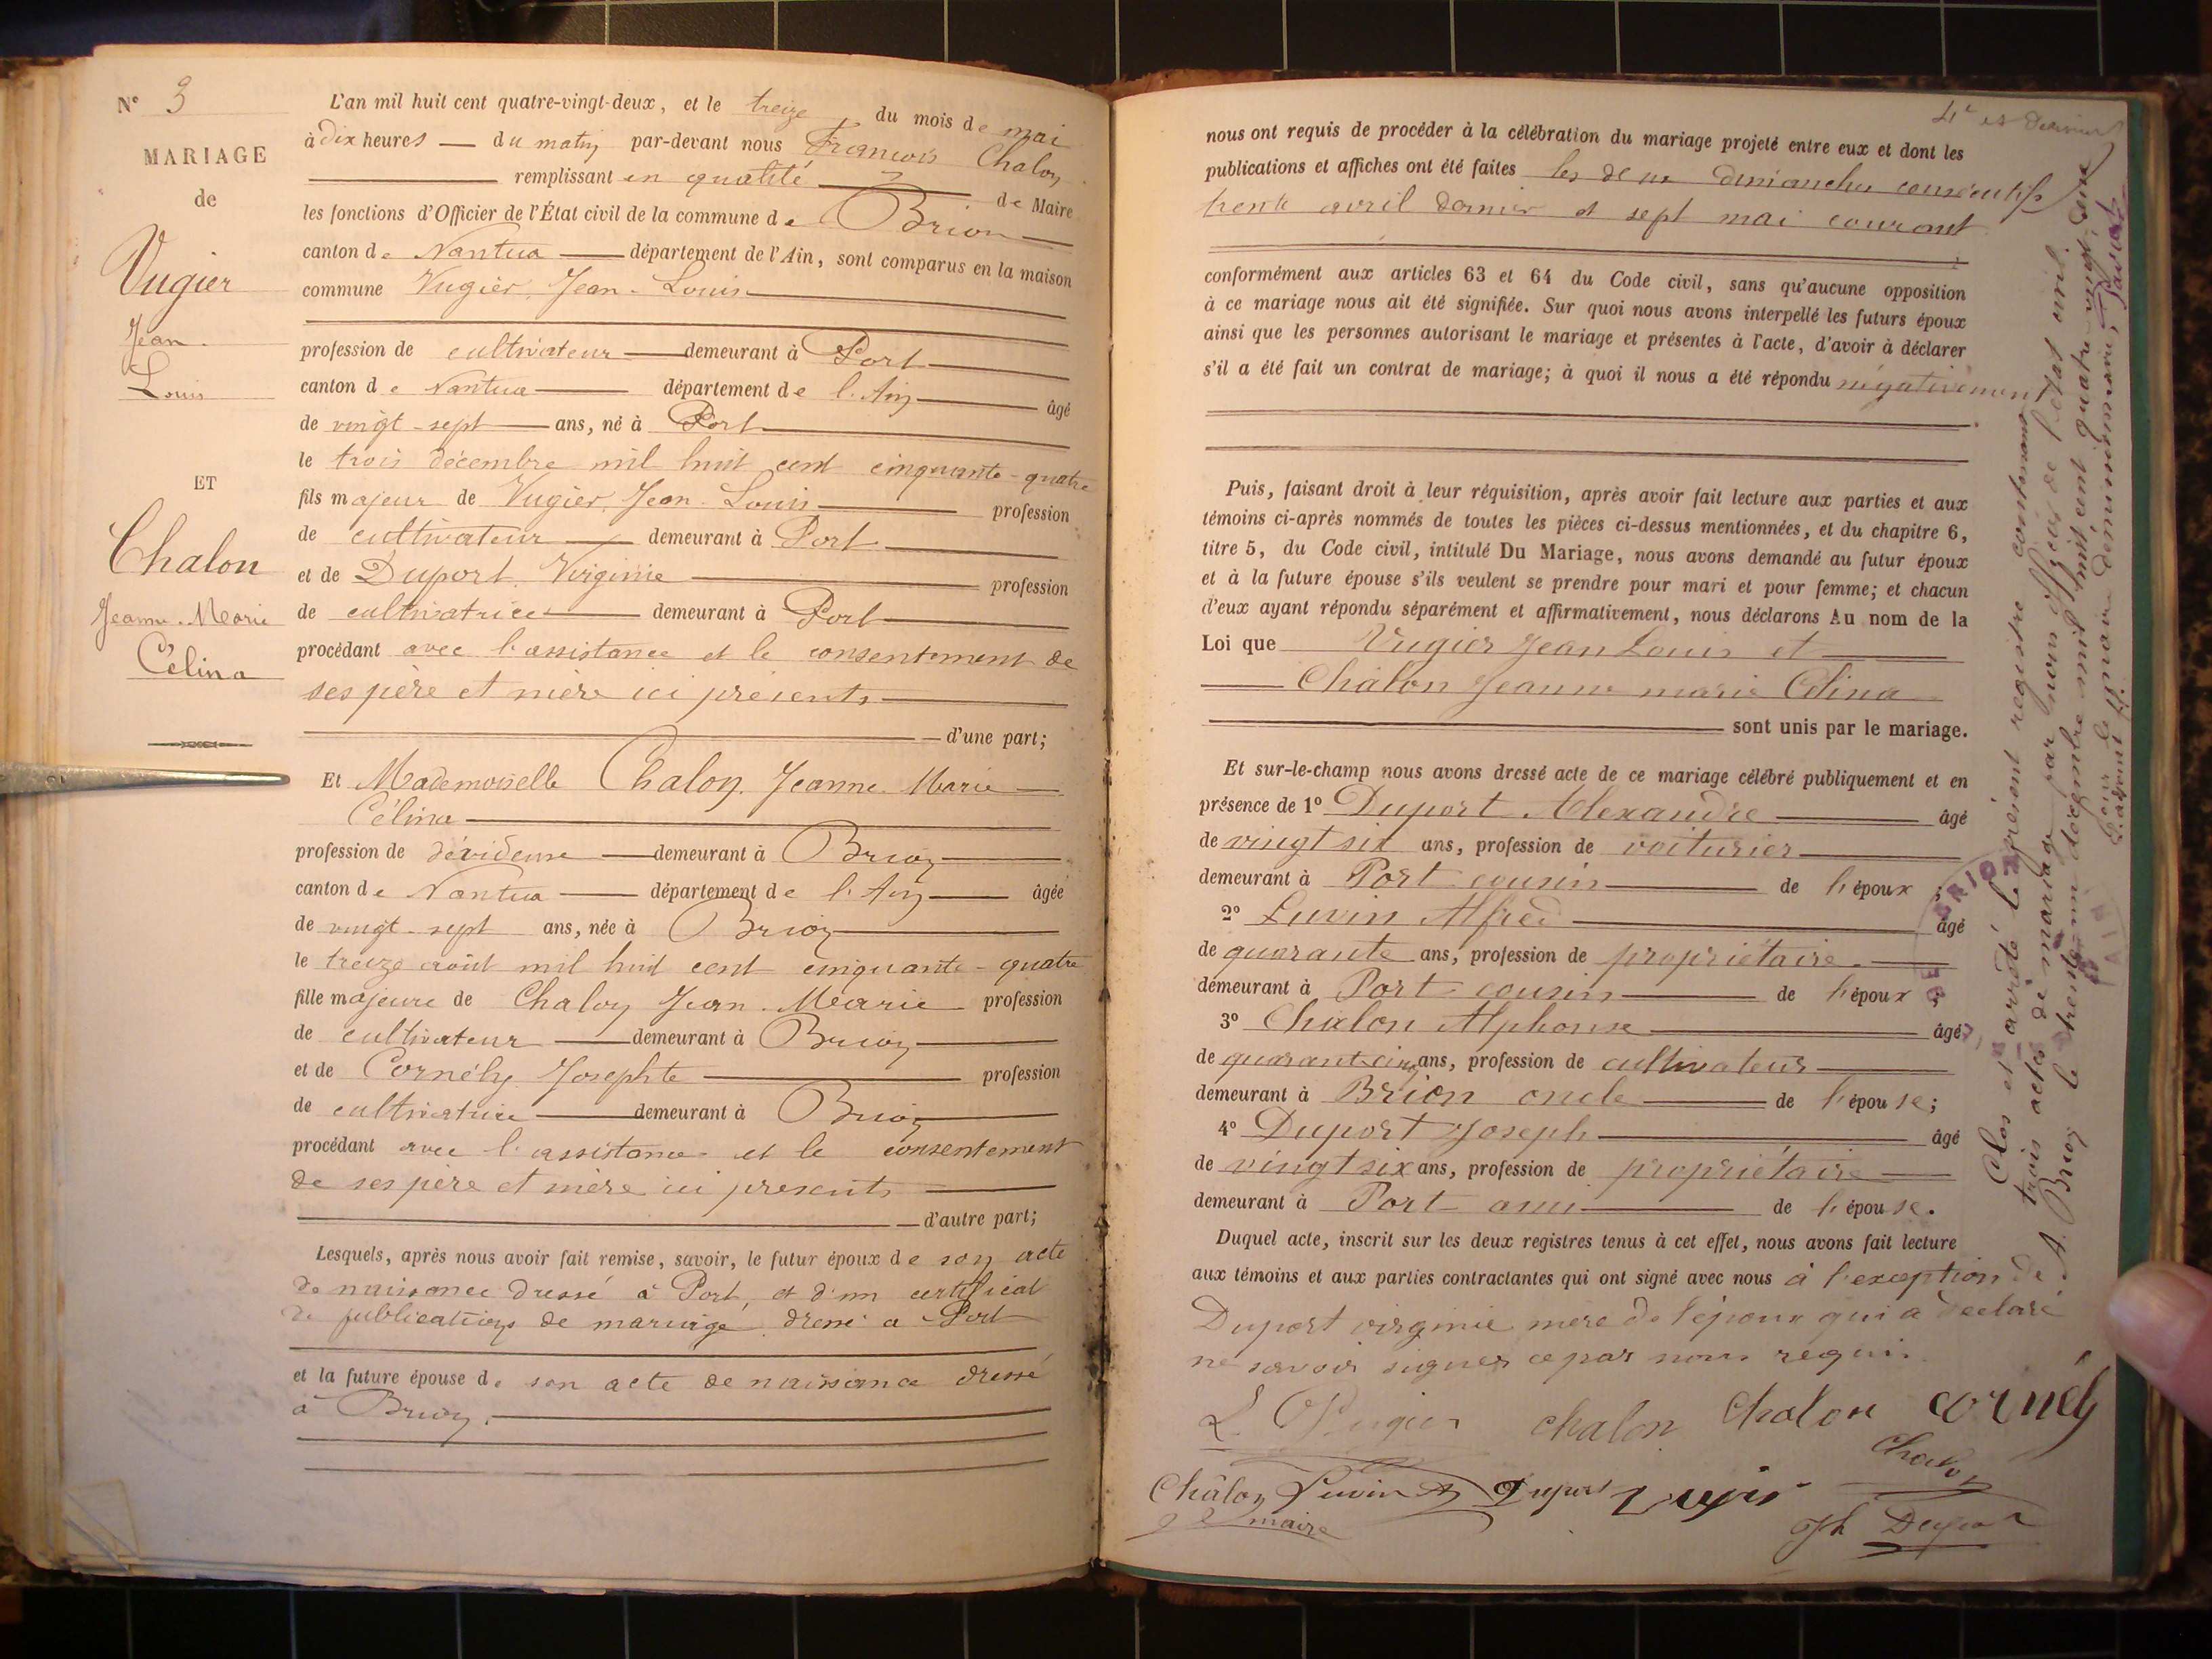 N° 3
MARIAGE
de
Vugier
Jean
Louis
ET
Chalon
Jeanne-Marie
Célina
L'an mil huit cent quatre-vingt-deux, et le treize du mois de mai
à dix heures du matin par-devant nous François Chalon
remplissant en qualité de Maire
les fonctions d'Officier de l'État civil de la commune de Brion
canton de Nantua département de l'Ain, sont comparus en la maison
commune Vugier, Jean-Louis
profession de cultivateur demeurant à Port
canton de Nantua département de l'Ain âgé
de vingt-sept ans, né à Port
le trois décembre mil huit cent cinquante-quatre
fils majeur de Vugier, Jean-Louis profession
de cultivateur demeurant à Port
et de Duport, Virginie profession
de cultivatrice demeurant à Port
procédant avec l'assistance et le consentement de
ses père et mère ici présents
d'une part;
Et Mademoiselle Chalon, Jeanne-Marie
Célina
profession de dévideuse demeurant à Brion
canton de Nantua département de l'Ain âgée
de vingt-sept ans, née à Brion
le treize août mil huit cent cinquante-quatre
fille majeure de Chalon Jean-Marie profession
de cultivateur demeurant à Brion
et de Cornély, Josephte profession
de cultivatrice demeurant à Brion
procédant avec l'assistance et le consentement
de ses père et mère ici présents
d'autre part;
Lesquels, après nous avoir fait remise, savoir, le futur époux de son acte
de naissance dressé à Port, et d'un certificat
de publications de mariage dressé à Port
et la future épouse de son acte de naissance dressé
à Brion.
4e et dernier
nous ont requis de procéder à la célébration du mariage projeté entre eux et dont les
publications et affiches ont été faites les deux dimanches consécutifs
trente avril dernier et sept mai courant
conformément aux articles 63 et 64 du Code civil, sans qu'aucune opposition
à ce mariage nous ait été signifiée. Sur quoi nous avons interpellé les futurs époux
ainsi que les personnes autorisant le mariage et présentes à l'acte, d'avoir à déclarer
s'il a été fait un contrat de mariage; à quoi il nous a été répondu négativement
Puis, faisant droit à leur réquisition, après avoir fait lecture aux parties et aux
témoins ci-après nommés de toutes les pièces ci-dessus mentionnées, et du chapitre 6,
titre 5, du Code civil, intitulé Du Mariage, nous avons demandé au futur époux
et à la future épouse s'ils veulent se prendre pour mari et pour femme; et chacun
d'eux ayant répondu séparément et affirmativement, nous déclarons Au nom de la
Loi que Vugier Jean Louis et
Chalon Jeanne marie Célina
sont unis par le mariage.
Et sur-le-champ nous avons dressé acte de ce mariage célébré publiquement et en
présence de 1° Duport Alexandre âgé
de vingt six ans, profession de voiturier
demeurant à Port cousin de l'époux;
2° Luvin Alfred âgé
de quarante ans, profession de propriétaire
demeurant à Port cousin de l'époux;
3° Chalon Alphonse âgé
de quarant cinq ans, profession de cultivateur
demeurant à Brion oncle de l'épouse;
4° Duport Joseph âgé
de vingt six ans, profession de propriétaire
demeurant à Port ami de l'épouse.
Duquel acte, inscrit sur les deux registres tenus à cet effet, nous avons fait lecture
aux témoins et aux parties contractantes qui ont signé avec nous à l'exception de
Duport virginie mère de l'époux qui a déclaré
ne savoir signer ce par nous requis.
L Vugier chalon Chalon Cornély
Chalon
Châlon Luvin A Duport Vugier
maire
Jh Duport
Clos et arrêté le présent registre contenant
trois actes de mariage par nous officier de l'état civil
A Brion le trente un décembre mil huit cent quatre-vingt-deux